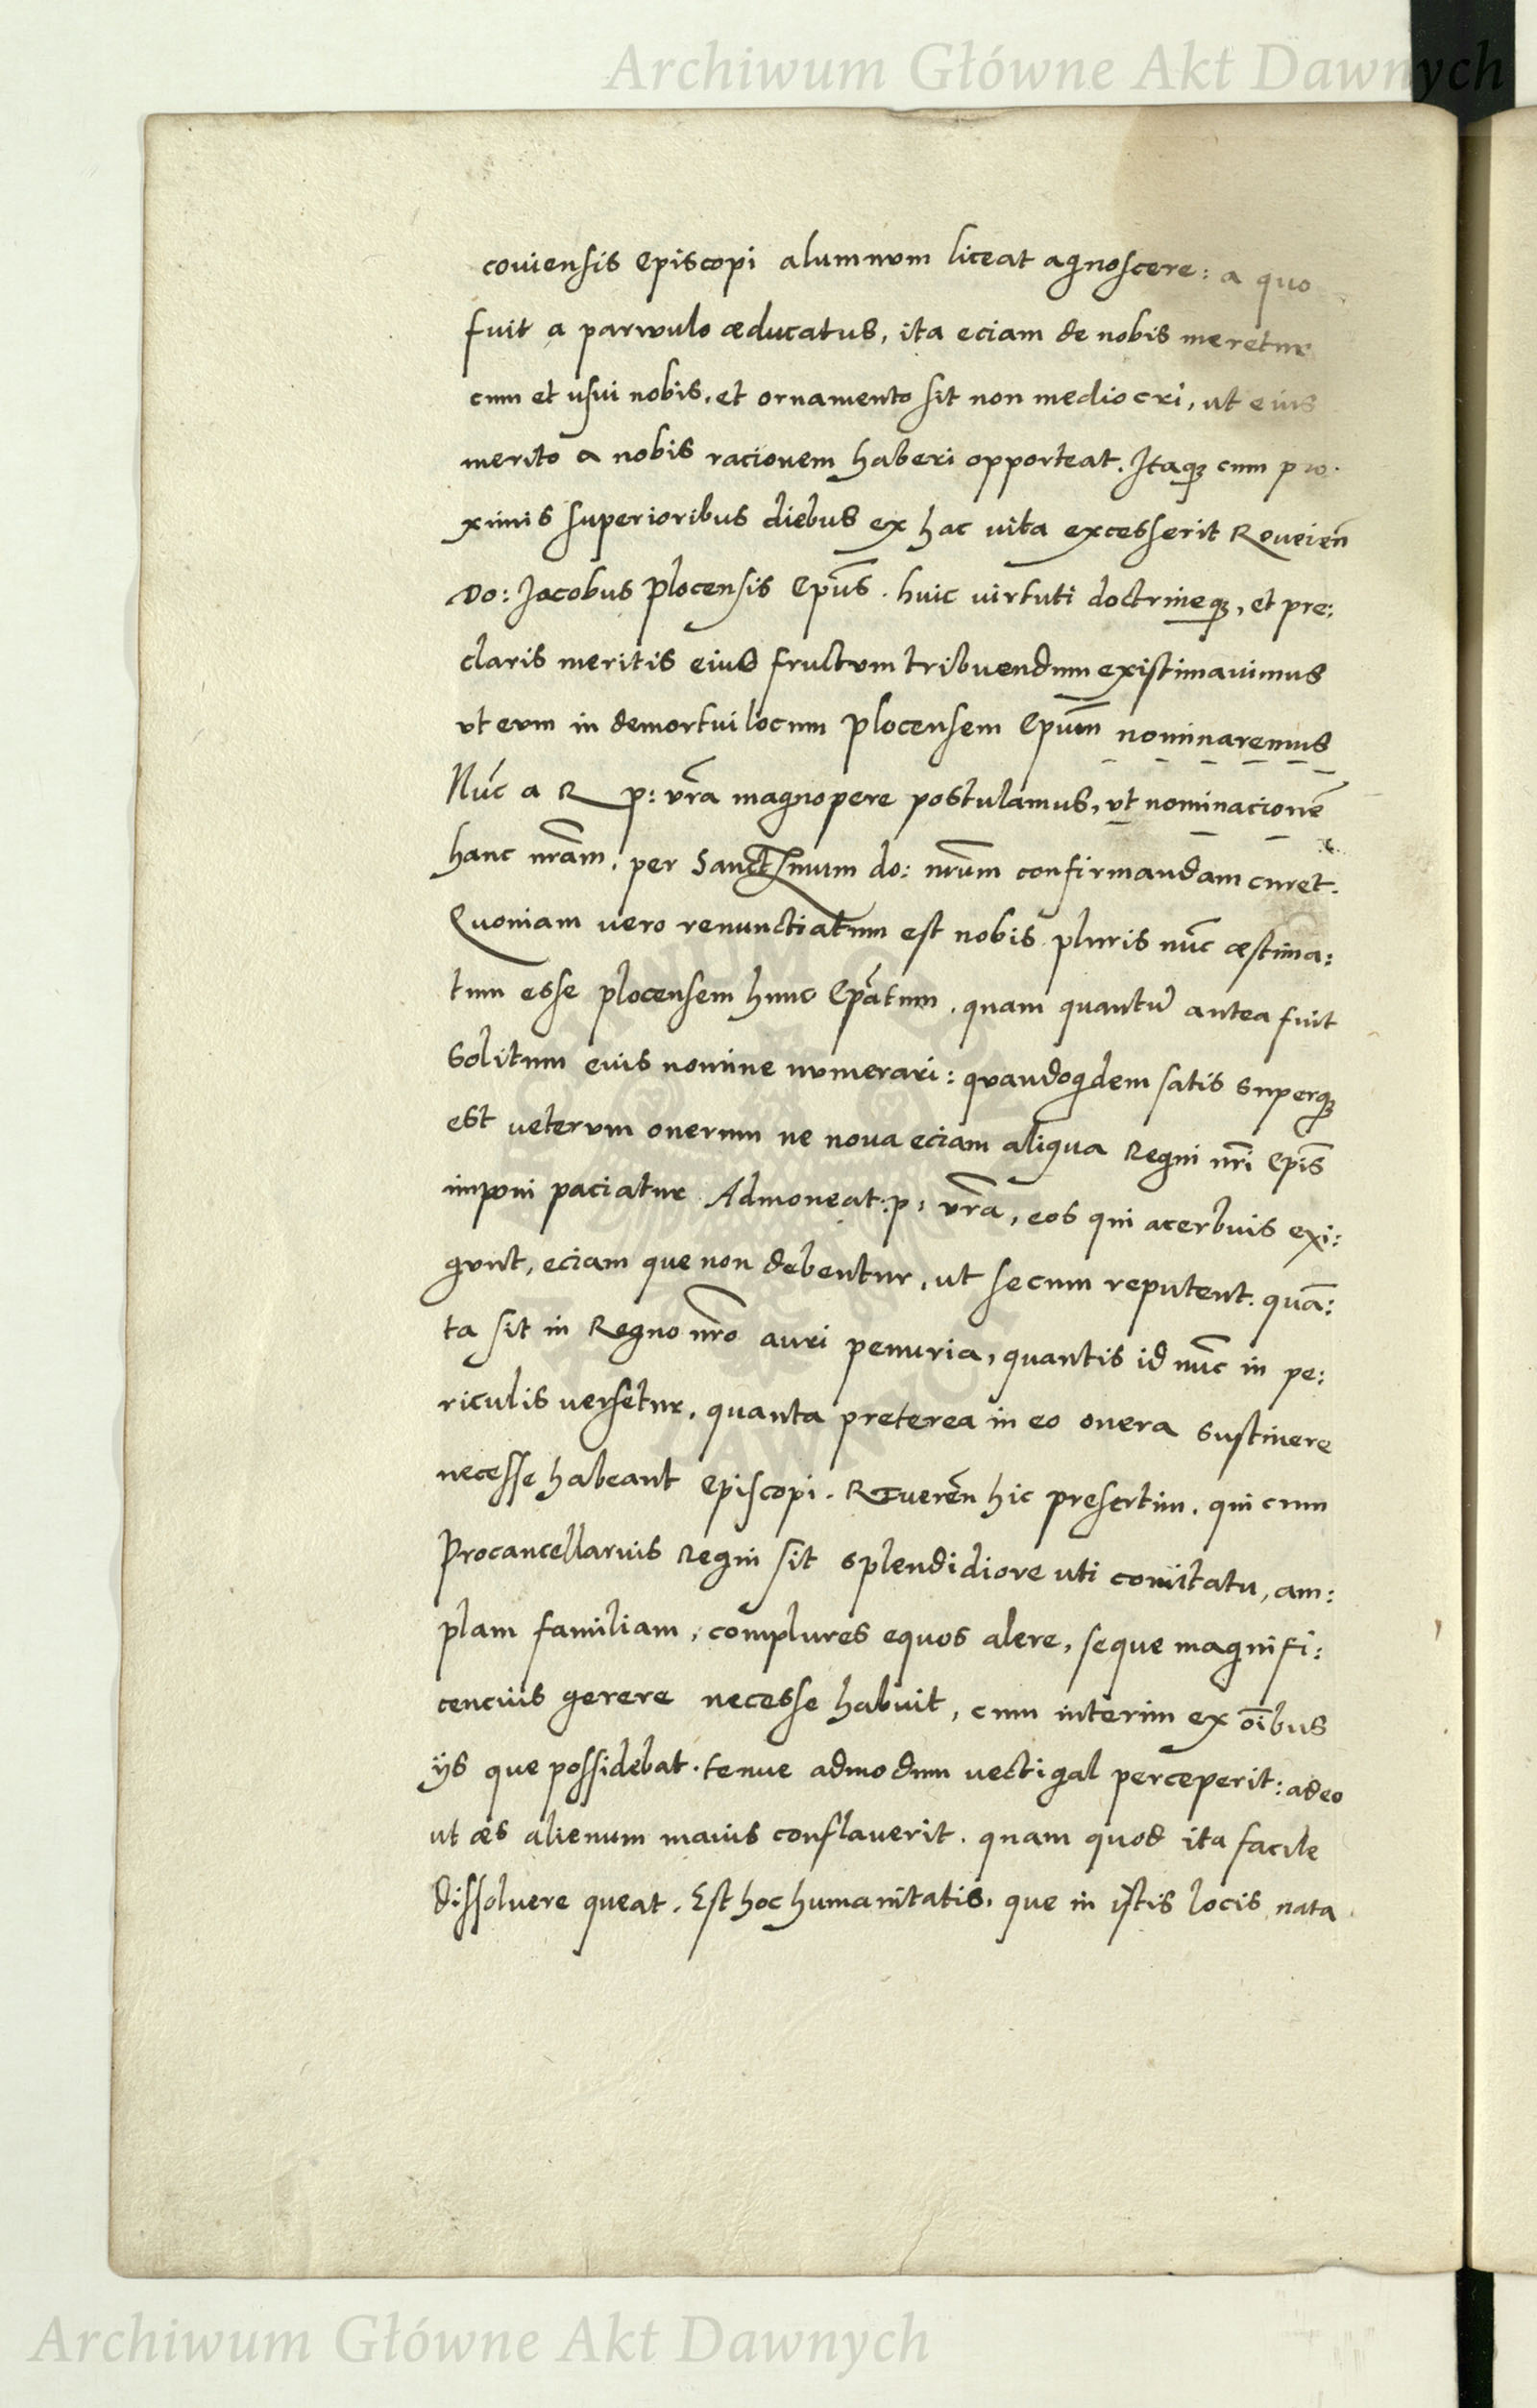 Archiwum Główne Akt Dawnych
coviensis Episcopi alumnum liceat agnoscere: a quo
fuit a parwulo æducatus, ita eciam de nobis meretur
cum et usui nobis, et ornamento sit non mediocri, ut eius
merito a nobis racionem haberi opporteat. Itaqȝ cum pro.
ximis superioribus diebus ex hac vita excesserit
Do: Jacobus Plocensis Ep̄us. huic virtuti doctrineqȝ, et pre:
claris meritis eius fructum tribuendum existimavimus
ut eum in demortui locum Plocensem Ep̄um nominaremus
Nūc a R p: vr̄a magnopere postulamus, ut nominacionē
hanc nr̄am, per Sanctissimum do: nr̄um confirmandam curet.
Quoniam vero renunctiatum est nobis pluris nūc æstima:
tum esse plocensem hunc Ep̄atum, quam quantū antea fuit
solitum eius nomine numerari: quandoqdem satis superqȝ
est veterum onerum ne nova eciam aliqua Regni nr̄i Ep̄is
imponi paciatur. Admoneat: p: vr̄a, eos qui acerbius exi:
gunt, eciam que non debentur, ut secum reputent. quā:
ta sit in Regno nr̄o auri penuria, quantis id nūc in pe:
riculis versetur, quanta preterea in eo onera sustinere
necesse habeant Episcopi. Reverēn hic presertim, qui cum
Procancellarius Regni sit splendidiore uti comitatu, am:
plam familiam, complures equos alere, seque magnifi:
cencius gerere necesse habuit, cum interim ex oībus
ijs que possidebat. tenue admodum vectigal perceperit: adeo
ut æs alienum maius conflaverit. quam quod ita facile
dissolvere queat. Est hoc humanitatis, que in istis locis nata
Archiwum Główne Akt Dawnych